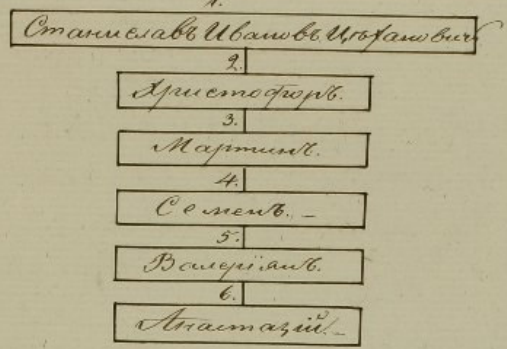 1.
Станиславъ Ивановъ Цѣхановичъ
2.
Христофоръ.
3.
Мартинъ.
4.
Семенъ. _
5.
Валеріянъ.
6.
Анастазій. _